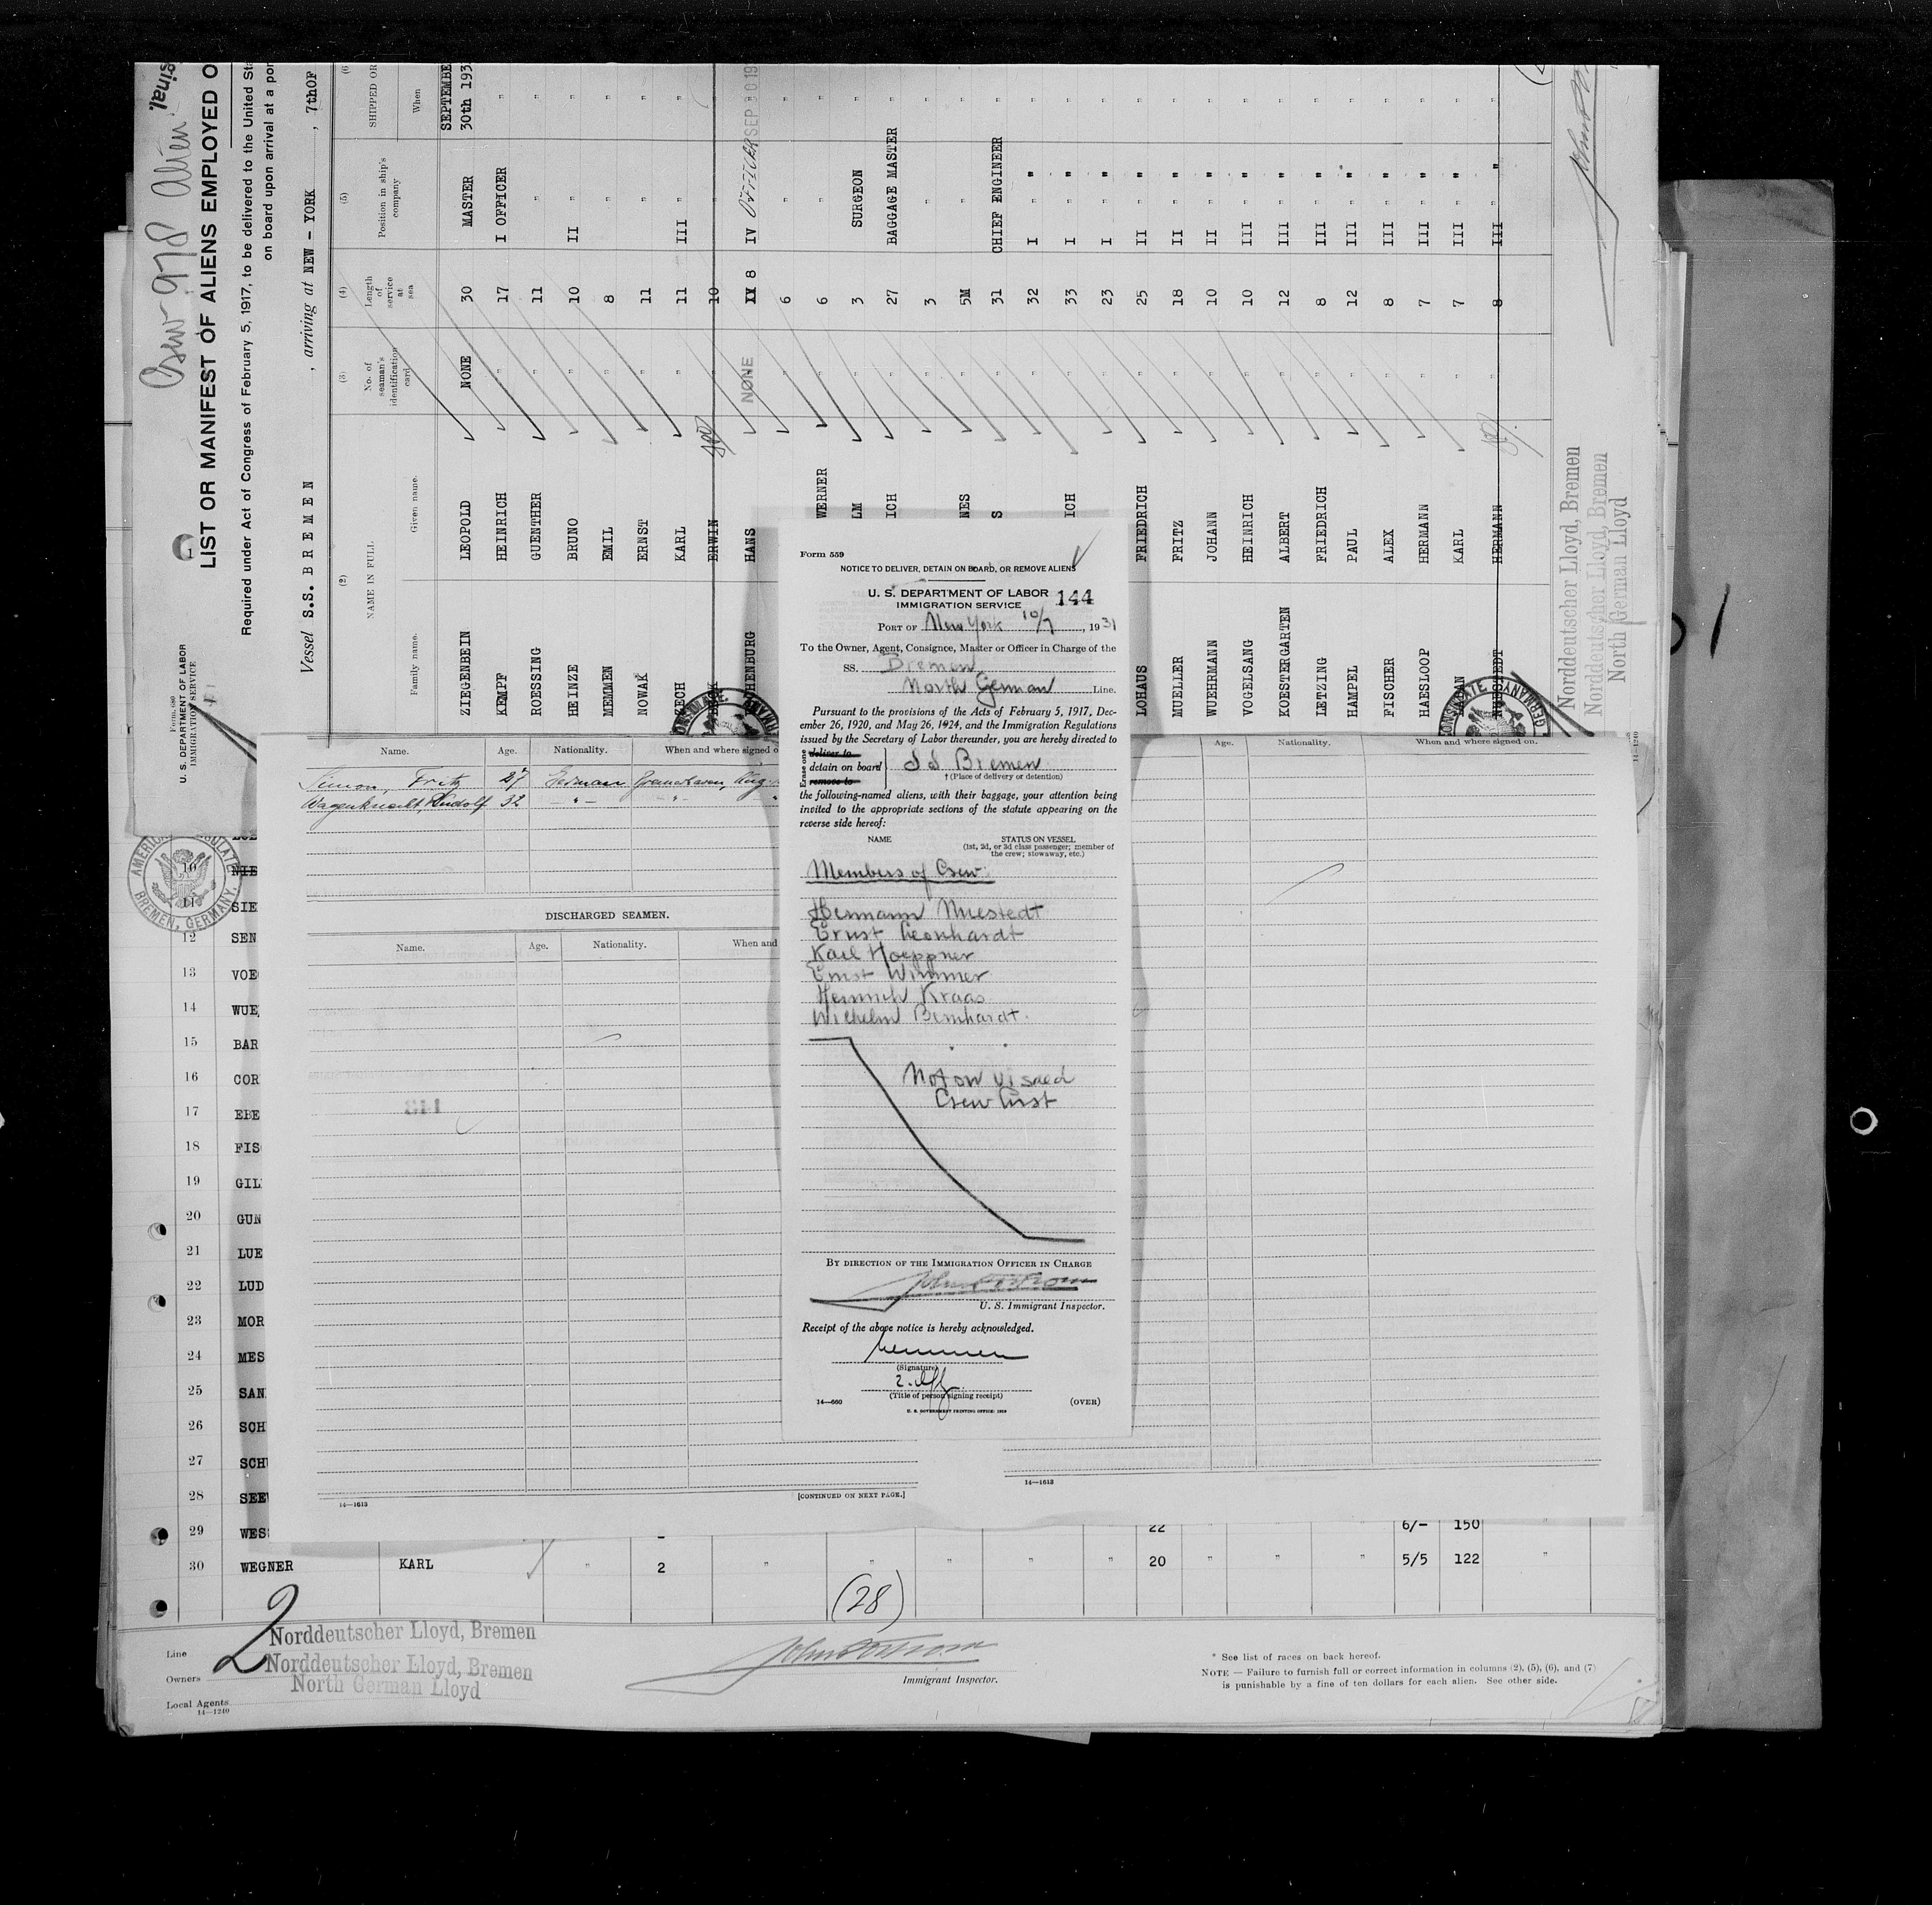 Original.
Crew 978 Alien
LIST OR MANIFEST OF ALIENS EMPLOYED O
Required under Act of Congress of February 5, 1917, to be delivered to the United Sta
on board upon arrival at a por
Form 680
U. S. DEPARTMENT OF LABOR
IMMIGRATION SERVICE
1
Vessel S.S. BREMEN , arriving at NEW - YORK , 7th OF
(2) (3) (4) (5) (6
NAME IN FULL
Family name. Given name.
No. of seaman's identification card
Length of service at sea
Position in ship's company
SHIPPED OR
When
ZIEGENBEIN LEOPOLD NONE 30 MASTER SEPTEMBE 30th 193
KEMPF HEINRICH " 17 I OFFICER "
ROESSING GUENTHER " 11 " "
HEINZE BRUNO " 10 II "
MEMMEN EMIL " 8 "
NOWAK ERNST " 11 "
ZECH KARL " 11 III "
ERWIN " 10 "
HENBURG HANS NONE IV 8 IV OFFICER SEP 30 19
" 6 " "
WERNER " 6 " "
LM " 3 SURGEON "
ICH " 27 BAGGAGE MASTER "
" 3 " "
NES " 5M " "
S " 31 CHIEF ENGINEER "
" 32 I " " "
ICH " 33 I " " "
" 23 I " " "
LOHAUS FRIEDRICH " 25 II " " "
MUELLER FRITZ " 18 II " " "
WUEHRMANN JOHANN " 10 II " " "
VOGELSANG HEINRICH " 10 III " " "
KOESTERGARTEN ALBERT " 12 III " " "
LETZING FRIEDRICH " 8 III " " "
HAMPEL PAUL " 12 III " " "
FISCHER ALEX " 8 III " " "
HAESLOOP HERMANN " 7 III " " "
AN KARL " 7 III " " "
NUESTEDT HERMANN " 8 III " " "
Norddeutscher Lloyd, Bremen
Norddeutscher Lloyd, Bremen
North German Lloyd
14—1240
Form 559
NOTICE TO DELIVER, DETAIN ON BOARD, OR REMOVE ALIENS
U. S. DEPARTMENT OF LABOR
IMMIGRATION SERVICE
144
PORT OF New York 10/7, 1931
To the Owner, Agent, Consignee, Master or Officer in Charge of the
SS. Bremen
North German Line.
Pursuant to the provisions of the Acts of February 5, 1917, Dec-
ember 26, 1920, and May 26, 1924, and the Immigration Regulations
issued by the Secretary of Labor thereunder, you are hereby directed to
Erase one
deliver to
detain on board
remove to
S S Bremen
† (Place of delivery or detention)
the following-named aliens, with their baggage, your attention being
invited to the appropriate sections of the statute appearing on the
reverse side hereof:
NAME STATUS ON VESSEL
(1st, 2d, or 3d class passenger; member of
the crew; stowaway, etc.)
Members of Crew
Hermann Nuestedt
Ernst Leonhardt
Karl Hoeppner
Ernst Wimmer
Heinrich Kraas
Wilhelm Bernhardt.
Not on visaed
Crew List
BY DIRECTION OF THE IMMIGRATION OFFICER IN CHARGE
U. S. Immigrant Inspector.
Receipt of the above notice is hereby acknowledged.
Memmen
(Signature)
2. Off
(Title of person signing receipt)
14—660 (OVER)
U. S. GOVERNMENT PRINTING OFFICE: 1929
Name. Age. Nationality. When and where signed o
Simon, Fritz 27 German Bremerhaven, Aug
Wagenknecht, Rudolf 32 " "
DISCHARGED SEAMEN.
Name. Age. Nationality. When and
14—1613 [CONTINUED ON NEXT PAGE.]
Age. Nationality. When and where signed on.
14—1613
AMERICAN CONSULATE
BREMEN, GERMANY.
10 NIE
11 SIE
12 SEN
13 VOE
14 WUE
15 BAR
16 COR
17 EBE
18 FIS
19 GIL
20 GUN
21 LUE
22 LUD
23 MOR
24 MES
25 SAN
26 SCH
27 SCH
28 SEE
29 WES 22 6/– 150
30 WEGNER KARL " 2 " " " " 20 " " " 5/5 122 "
(28)
2
Line Norddeutscher Lloyd, Bremen
Owners Norddeutscher Lloyd, Bremen
North German Lloyd
Local Agents
14—1240
Immigrant Inspector.
* See list of races on back hereof.
NOTE — Failure to furnish full or correct information in columns (2), (5), (6), and (7)
is punishable by a fine of ten dollars for each alien. See other side.